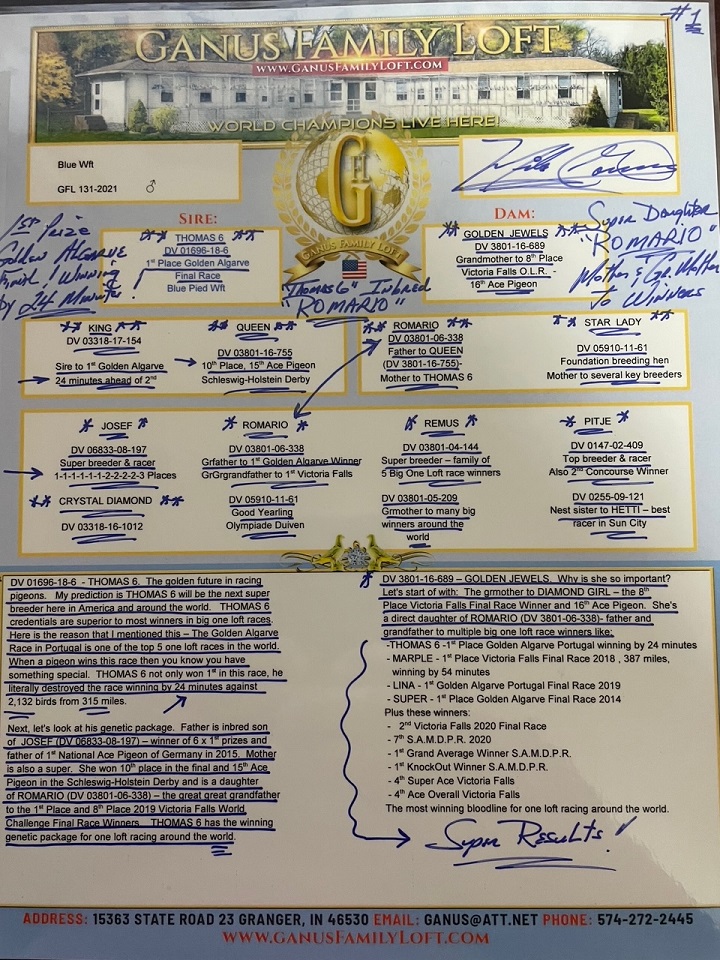 #1
GANUS FAMILY LOFT
WWW.GANUSFAMILYLOFT.COM
WORLD CHAMPIONS LIVE HERE!
Blue Wft
GFL 131-2021 ♂
GFL
GANUS FAMILY LOFT
1st Prize
Golden Algarve
Final! Winning
by 24 Minutes!
SIRE:
** THOMAS 6 **
DV 01696-18-6
1st Place Golden Algarve
Final Race
Blue Pied Wft
"Thomas 6" Inbred
"ROMARIO"
DAM:
** GOLDEN JEWELS **
DV 3801-16-689
Grandmother to 8th Place
Victoria Falls O.L.R. -
16th Ace Pigeon
Super Daughter
"ROMARIO"
Mother & Gr. Mother
to Winners
** KING **
DV 03318-17-154
Sire to 1st Golden Algarve
24 minutes ahead of 2nd
** QUEEN **
DV 03801-16-755
10th Place, 15th Ace Pigeon
Schleswig-Holstein Derby
** ROMARIO **
DV 03801-06-338
Father to QUEEN
(DV 3801-16-755)-
Mother to THOMAS 6
** STAR LADY **
DV 05910-11-61
Foundation breeding hen
Mother to several key breeders
* JOSEF *
DV 06833-08-197
Super breeder & racer
1-1-1-1-1-2-2-2-2-3 Places
** CRYSTAL DIAMOND **
DV 03318-16-1012
* ROMARIO *
DV 03801-06-338
Grfather to 1st Golden Algarve Winner
GrGrgrandfather to 1st Victoria Falls
DV 05910-11-61
Good Yearling
Olympiade Duiven
* REMUS *
DV 03801-04-144
Super breeder – family of
5 Big One Loft race winners
DV 03801-05-209
Grmother to many big
winners around the
world
* PITJE *
DV 0147-02-409
Top breeder & racer
Also 2nd Concourse Winner
DV 0255-09-121
Nest sister to HETTI – best
racer in Sun City
DV 01696-18-6 - THOMAS 6. The golden future in racing
pigeons. My prediction is THOMAS 6 will be the next super
breeder here in America and around the world. THOMAS 6
credentials are superior to most winners in big one loft races.
Here is the reason that I mentioned this – The Golden Algarve
Race in Portugal is one of the top 5 one loft races in the world.
When a pigeon wins this race then you know you have
something special. THOMAS 6 not only won 1st in this race, he
literally destroyed the race winning by 24 minutes against
2,132 birds from 315 miles.
Next, let's look at his genetic package. Father is inbred son
of JOSEF (DV 06833-08-197) – winner of 6 x 1st prizes and
father of 1st National Ace Pigeon of Germany in 2015. Mother
is also a super. She won 10th place in the final and 15th Ace
Pigeon in the Schleswig-Holstein Derby and is a daughter
of ROMARIO (DV 03801-06-338) – the great great grandfather
to the 1st Place and 8th Place 2019 Victoria Falls World
Challenge Final Race Winners THOMAS 6 has the winning
genetic package for one loft racing around the world.
* DV 3801-16-689 – GOLDEN JEWELS. Why is she so important?
Let's start of with: The grmother to DIAMOND GIRL – the 8th
Place Victoria Falls Final Race Winner and 16th Ace Pigeon. She's
a direct daughter of ROMARIO (DV 3801-06-338)- father and
grandfather to multiple big one loft race winners like;
-THOMAS 6 -1st Place Golden Algarve Portugal winning by 24 minutes
- MARPLE - 1st Place Victoria Falls Final Race 2018 , 387 miles,
winning by 54 minutes
- LINA - 1st Golden Algarve Portugal Final Race 2019
- SUPER - 1st Place Golden Algarve Final Race 2014
Plus these winners:
- 2nd Victoria Falls 2020 Final Race
- 7th S.A.M.D.P.R. 2020
- 1st Grand Average Winner S.A.M.D.P.R.
- 1st KnockOut Winner S.A.M.D.P.R.
- 4th Super Ace Victoria Falls
- 4th Ace Overall Victoria Falls
The most winning bloodline for one loft racing around the world.
Super Results!
ADDRESS: 15363 STATE ROAD 23 GRANGER, IN 46530 EMAIL: GANUS@ATT.NET PHONE: 574-272-2445
WWW.GANUSFAMILYLOFT.COM